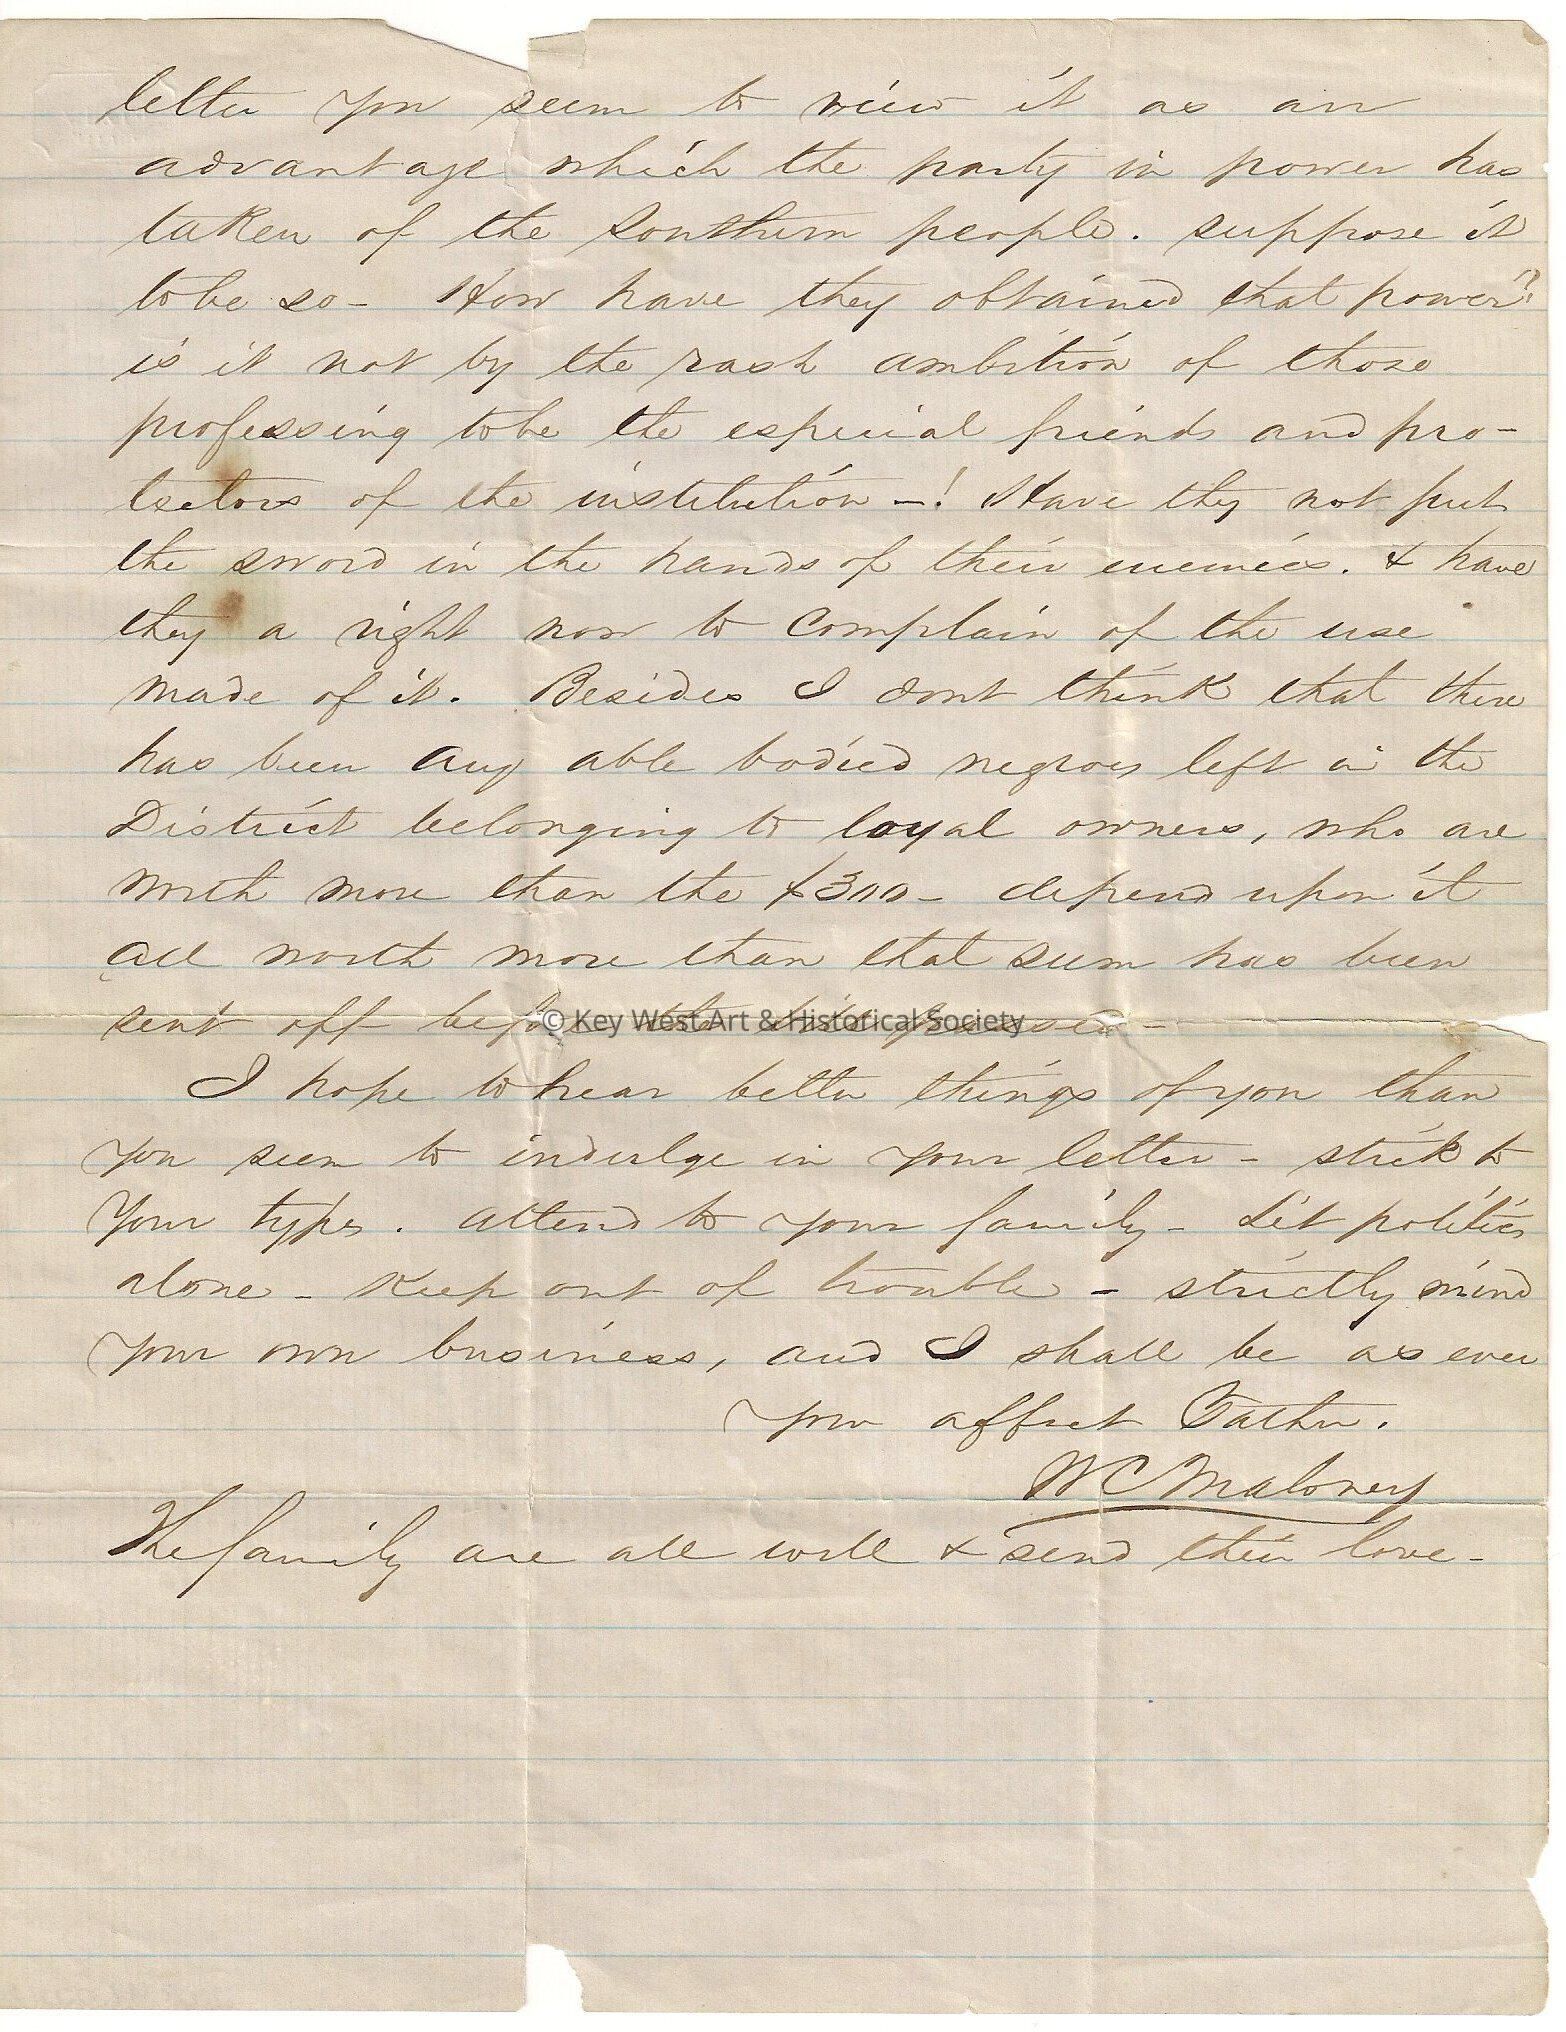 letter you seem to view it as an
advantage which the party in power has
taken of the Southern people. suppose it
to be so - How have they obtained that power?
is it not by the rash ambition of those
professing to be the especial friends and pro-
tectors of the institution -! Have they not put
the sword in the hands of their enemies. & have
they a right now to complain of the use
made of it. Besides I dont think that there
has been any able bodied negroes left in the
District belonging to loyal owners, who are
worth more than the $300 - depend upon it
all worth more than that sum has been
sent off before the bill passed -
© Key West Art & Historical Society
I hope to hear better things of you than
you seem to indulge in your letter - stick to
your types. attend to your family - Let politics
alone - Keep out of trouble - strictly mind
your own business, and I shall be as ever
your affect Father.
WC Maloney
The family are all well & send their love -